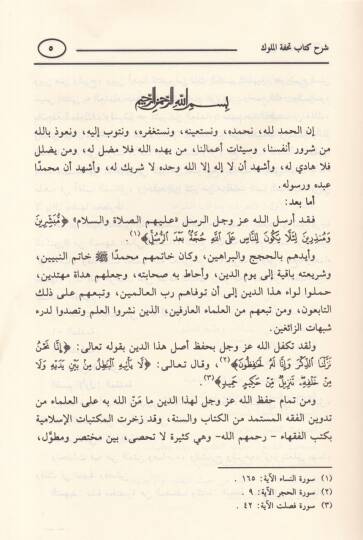 شرح كتاب تحفة الملوك
٥
بسم الله الرحمن الرحيم
إن الحمد لله، نحمده، ونستعينه، ونستغفره، ونتوب إليه، ونعوذ بالله
من شرور أنفسنا، وسيئات أعمالنا، من يهده الله فلا مضل له، ومن يضلل
فلا هادي له، وأشهد أن لا إله إلا الله وحده لا شريك له، وأشهد أن محمدًا
عبده ورسوله.
أما بعد:
فقد أرسل الله عز وجل الرسل «عليهم الصلاة والسلام» ﴿مُّبَشِّرِينَ
وَمُنذِرِينَ لِئَلَّا يَكُونَ لِلنَّاسِ عَلَى اللَّهِ حُجَّةٌ بَعْدَ الرُّسُلِ﴾(١).
وأيدهم بالحجج والبراهين، وكان خاتمهم محمدًا ﷺ خاتم النبيين،
وشريعته باقية إلى يوم الدين، وأحاط به صحابته، وجعلهم هداة مهتدين،
حملوا لواء هذا الدين إلى أن توفاهم رب العالمين، وتبعهم على ذلك
التابعون، ومن تبعهم من العلماء العارفين، الذين نشروا العلم وتصدوا لدرء
شبهات الزائغين.
ولقد تكفل الله عز وجل بحفظ أصل هذا الدين بقوله تعالى: ﴿إِنَّا نَحْنُ
نَزَّلْنَا الذِّكْرَ وَإِنَّا لَهُ لَحَافِظُونَ﴾(٢)، وقال تعالى: ﴿لَّا يَأْتِيهِ الْبَاطِلُ مِن بَيْنِ يَدَيْهِ وَلَا
مِنْ خَلْفِهِ تَنزِيلٌ مِّنْ حَكِيمٍ حَمِيدٍ﴾(٣).
ومن تمام حفظ الله عز وجل لهذا الدين ما مَنّ الله به على العلماء من
تدوين الفقه المستمد من الكتاب والسنة، وقد زخرت المكتبات الإسلامية
بكتب الفقهاء - رحمهم الله- وهي كثيرة لا تحصى، بين مختصر ومطوَّل،
(١) سورة النساء الآية: ١٦٥.
(٢) سورة الحجر الآية: ٩.
(٣) سورة فصلت الآية: ٤٢.